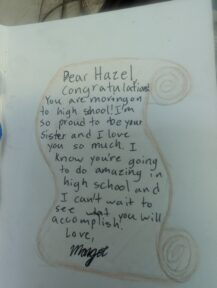 Dear Hazel,
Congratulations!
You are moving on
to high school! I'm
so proud to be your
sister and I love
you so much. I
know you're going
to do amazing in
high school and
I can't wait to
see what you will
accomplish.
Love,